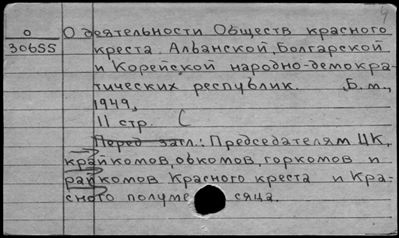 4
О
30655
О деятельности Обществ красного
креста Албанской, Болгарской
и Корейской народно-демокра-
тических республик. Б.м.,
1949.
11 стр. С
Перед загл.: Председателям ЦК,
крайкомов, обкомов, горкомов и
райкомов Красного креста и Кра-
сного полуме сяца.